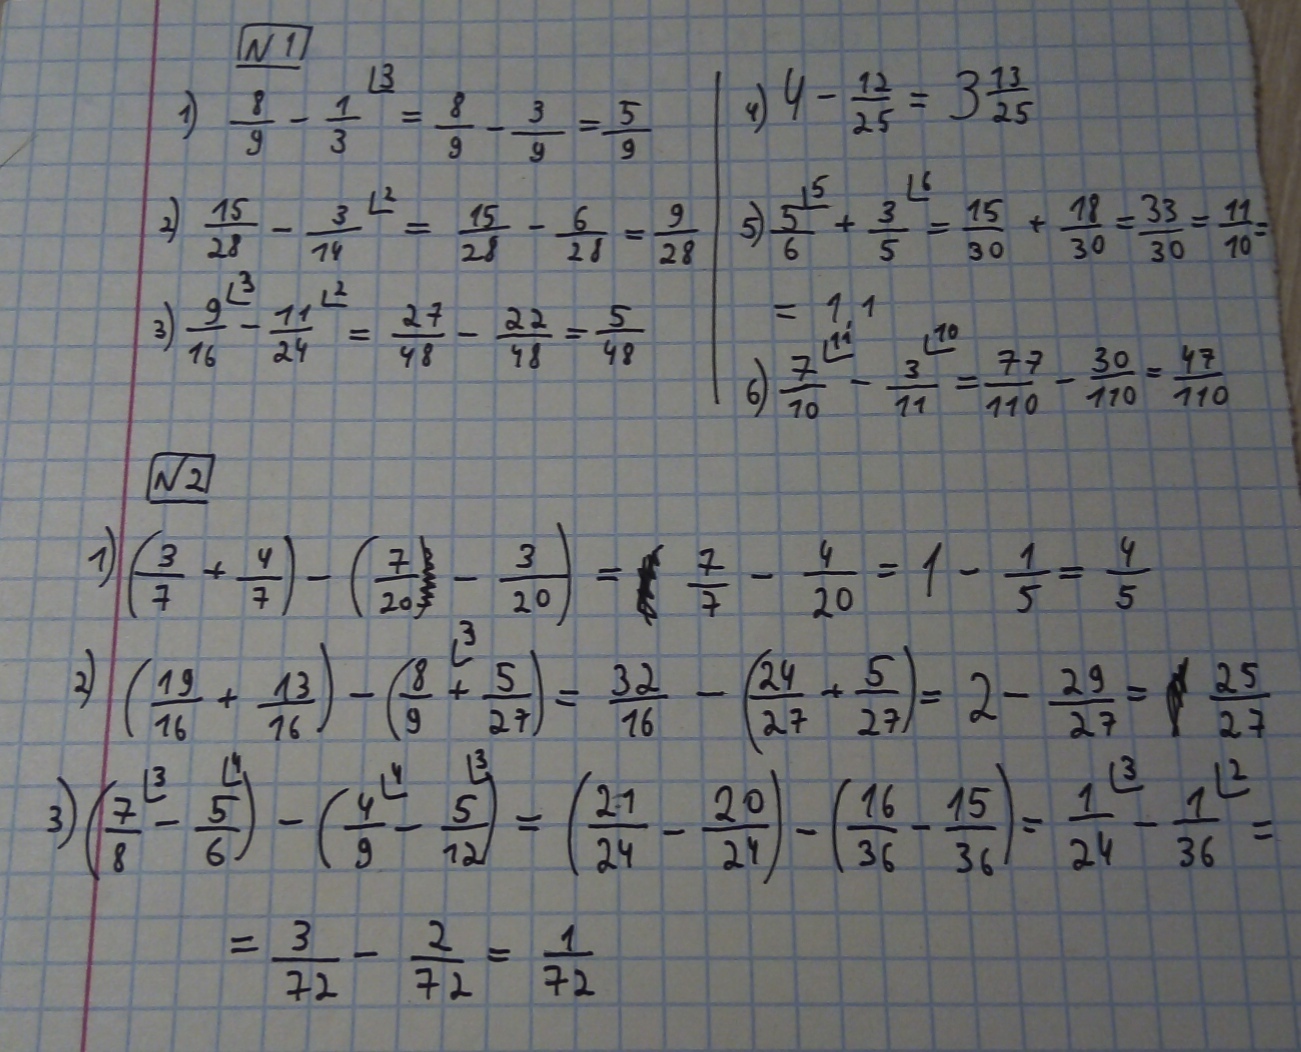 N 1
1) 8/9 - 1/3 ⌊3 = 8/9 - 3/9 = 5/9
2) 15/28 - 3/14 ⌊2 = 15/28 - 6/28 = 9/28
3) 9/16 ⌊3 - 11/24 ⌊2 = 27/48 - 22/48 = 5/48
4) 4 - 12/25 = 3 13/25
5) 5/6 ⌊5 + 3/5 ⌊6 = 15/30 + 18/30 = 33/30 = 11/10 =
= 1,1
6) 7/10 ⌊11 - 3/11 ⌊10 = 77/110 - 30/110 = 47/110
N 2
1) (3/7 + 4/7) - (7/20 - 3/20) = 7/7 - 4/20 = 1 - 1/5 = 4/5
2) (19/16 + 13/16) - (8/9 ⌊3 + 5/27) = 32/16 - (24/27 + 5/27) = 2 - 29/27 = 25/27
3) (7/8 ⌊3 - 5/6 ⌊4) - (4/9 ⌊4 - 5/12 ⌊3) = (21/24 - 20/24) - (16/36 - 15/36) = 1/24 ⌊3 - 1/36 ⌊2 =
= 3/72 - 2/72 = 1/72